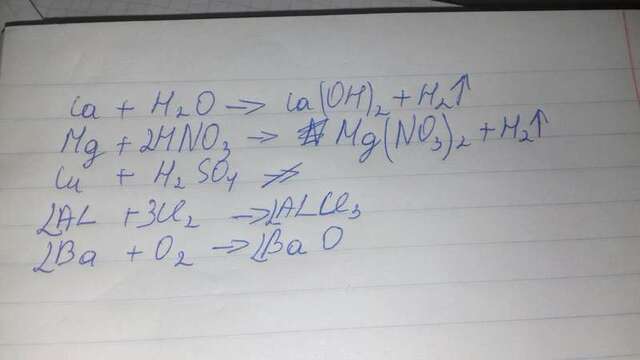 Ca + H₂O → Ca(OH)₂ + H₂↑
Mg + 2HNO₃ → Mg(NO₃)₂ + H₂↑
Cu + H₂SO₄ ↛
2AL + 3Cl₂ → 2ALCl₃
2Ba + O₂ → 2BaO